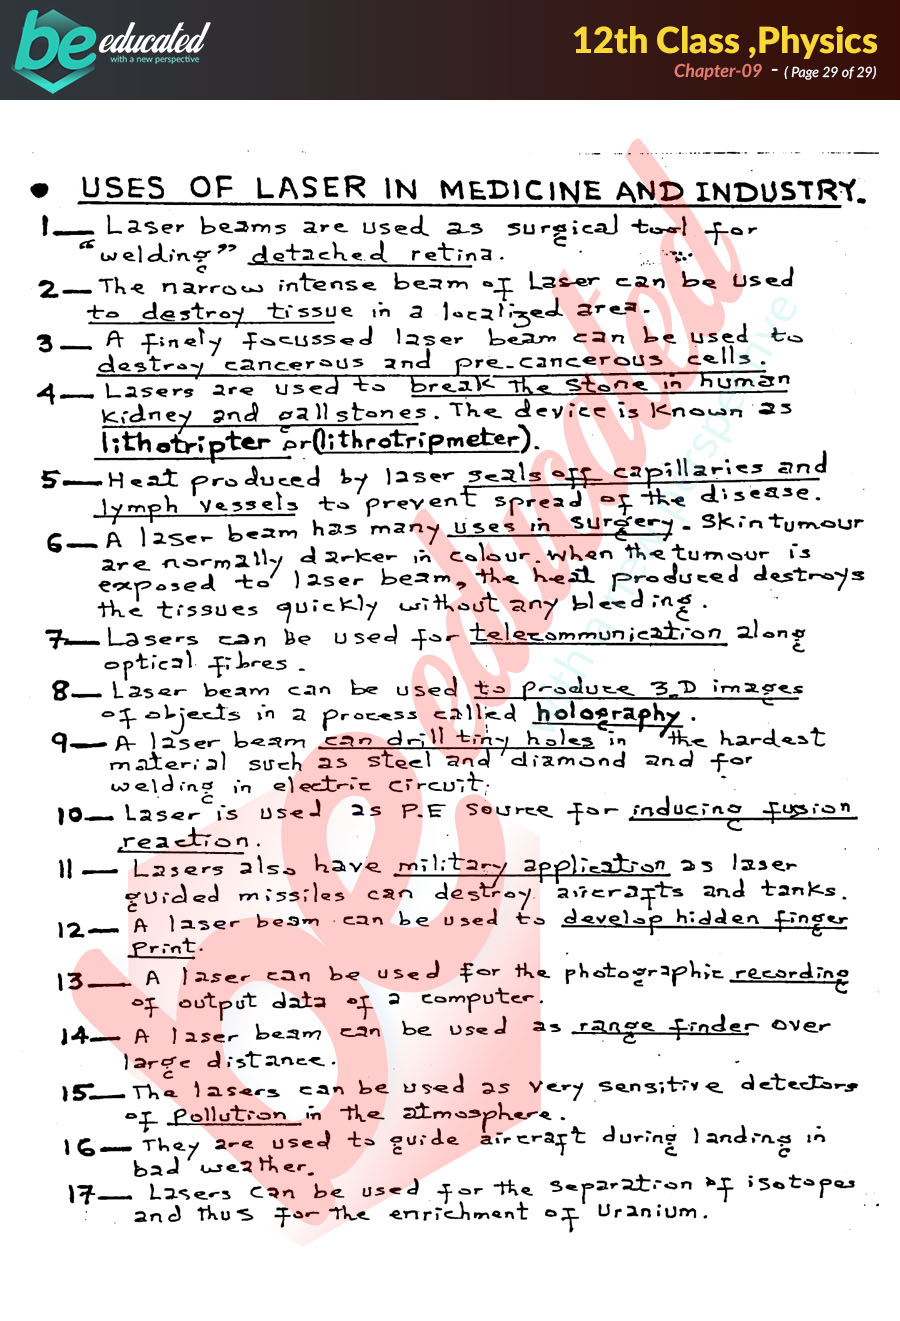 be educated
with a new perspective
12th Class ,Physics
Chapter-09 - ( Page 29 of 29)
• USES OF LASER IN MEDICINE AND INDUSTRY.
1— Laser beams are used as surgical tool for
"welding" detached retina.
2— The narrow intense beam of Laser can be used
to destroy tissue in a localized area.
3— A finely focussed laser beam can be used to
destroy cancerous and pre-cancerous cells.
4— Lasers are used to break the stone in human
kidney and gallstones. The device is known as
lithotripter or (lithrotripmeter).
5— Heat produced by laser seals off capillaries and
lymph vessels to prevent spread of the disease.
6— A laser beam has many uses in surgery. Skin tumour
are normally darker in colour. when the tumour is
exposed to laser beam, the heat produced destroys
the tissues quickly without any bleeding.
7— Lasers can be used for telecommunication along
optical fibres.
8— Laser beam can be used to produce 3.D images
of objects in a process called holography.
9— A laser beam can drill tiny holes in the hardest
material such as steel and diamond and for
welding in electric circuit.
10— Laser is used as P.E source for inducing fusion
reaction.
11— Lasers also have military application as laser
guided missiles can destroy aircrafts and tanks.
12— A laser beam can be used to develop hidden finger
print.
13— A laser can be used for the photographic recording
of output data of a computer.
14— A laser beam can be used as range finder over
large distance.
15— The lasers can be used as very sensitive detectors
of pollution in the atmosphere.
16— They are used to guide aircraft during landing in
bad weather.
17— Lasers can be used for the separation of isotopes
and thus for the enrichment of Uranium.
be educated
with a new perspective